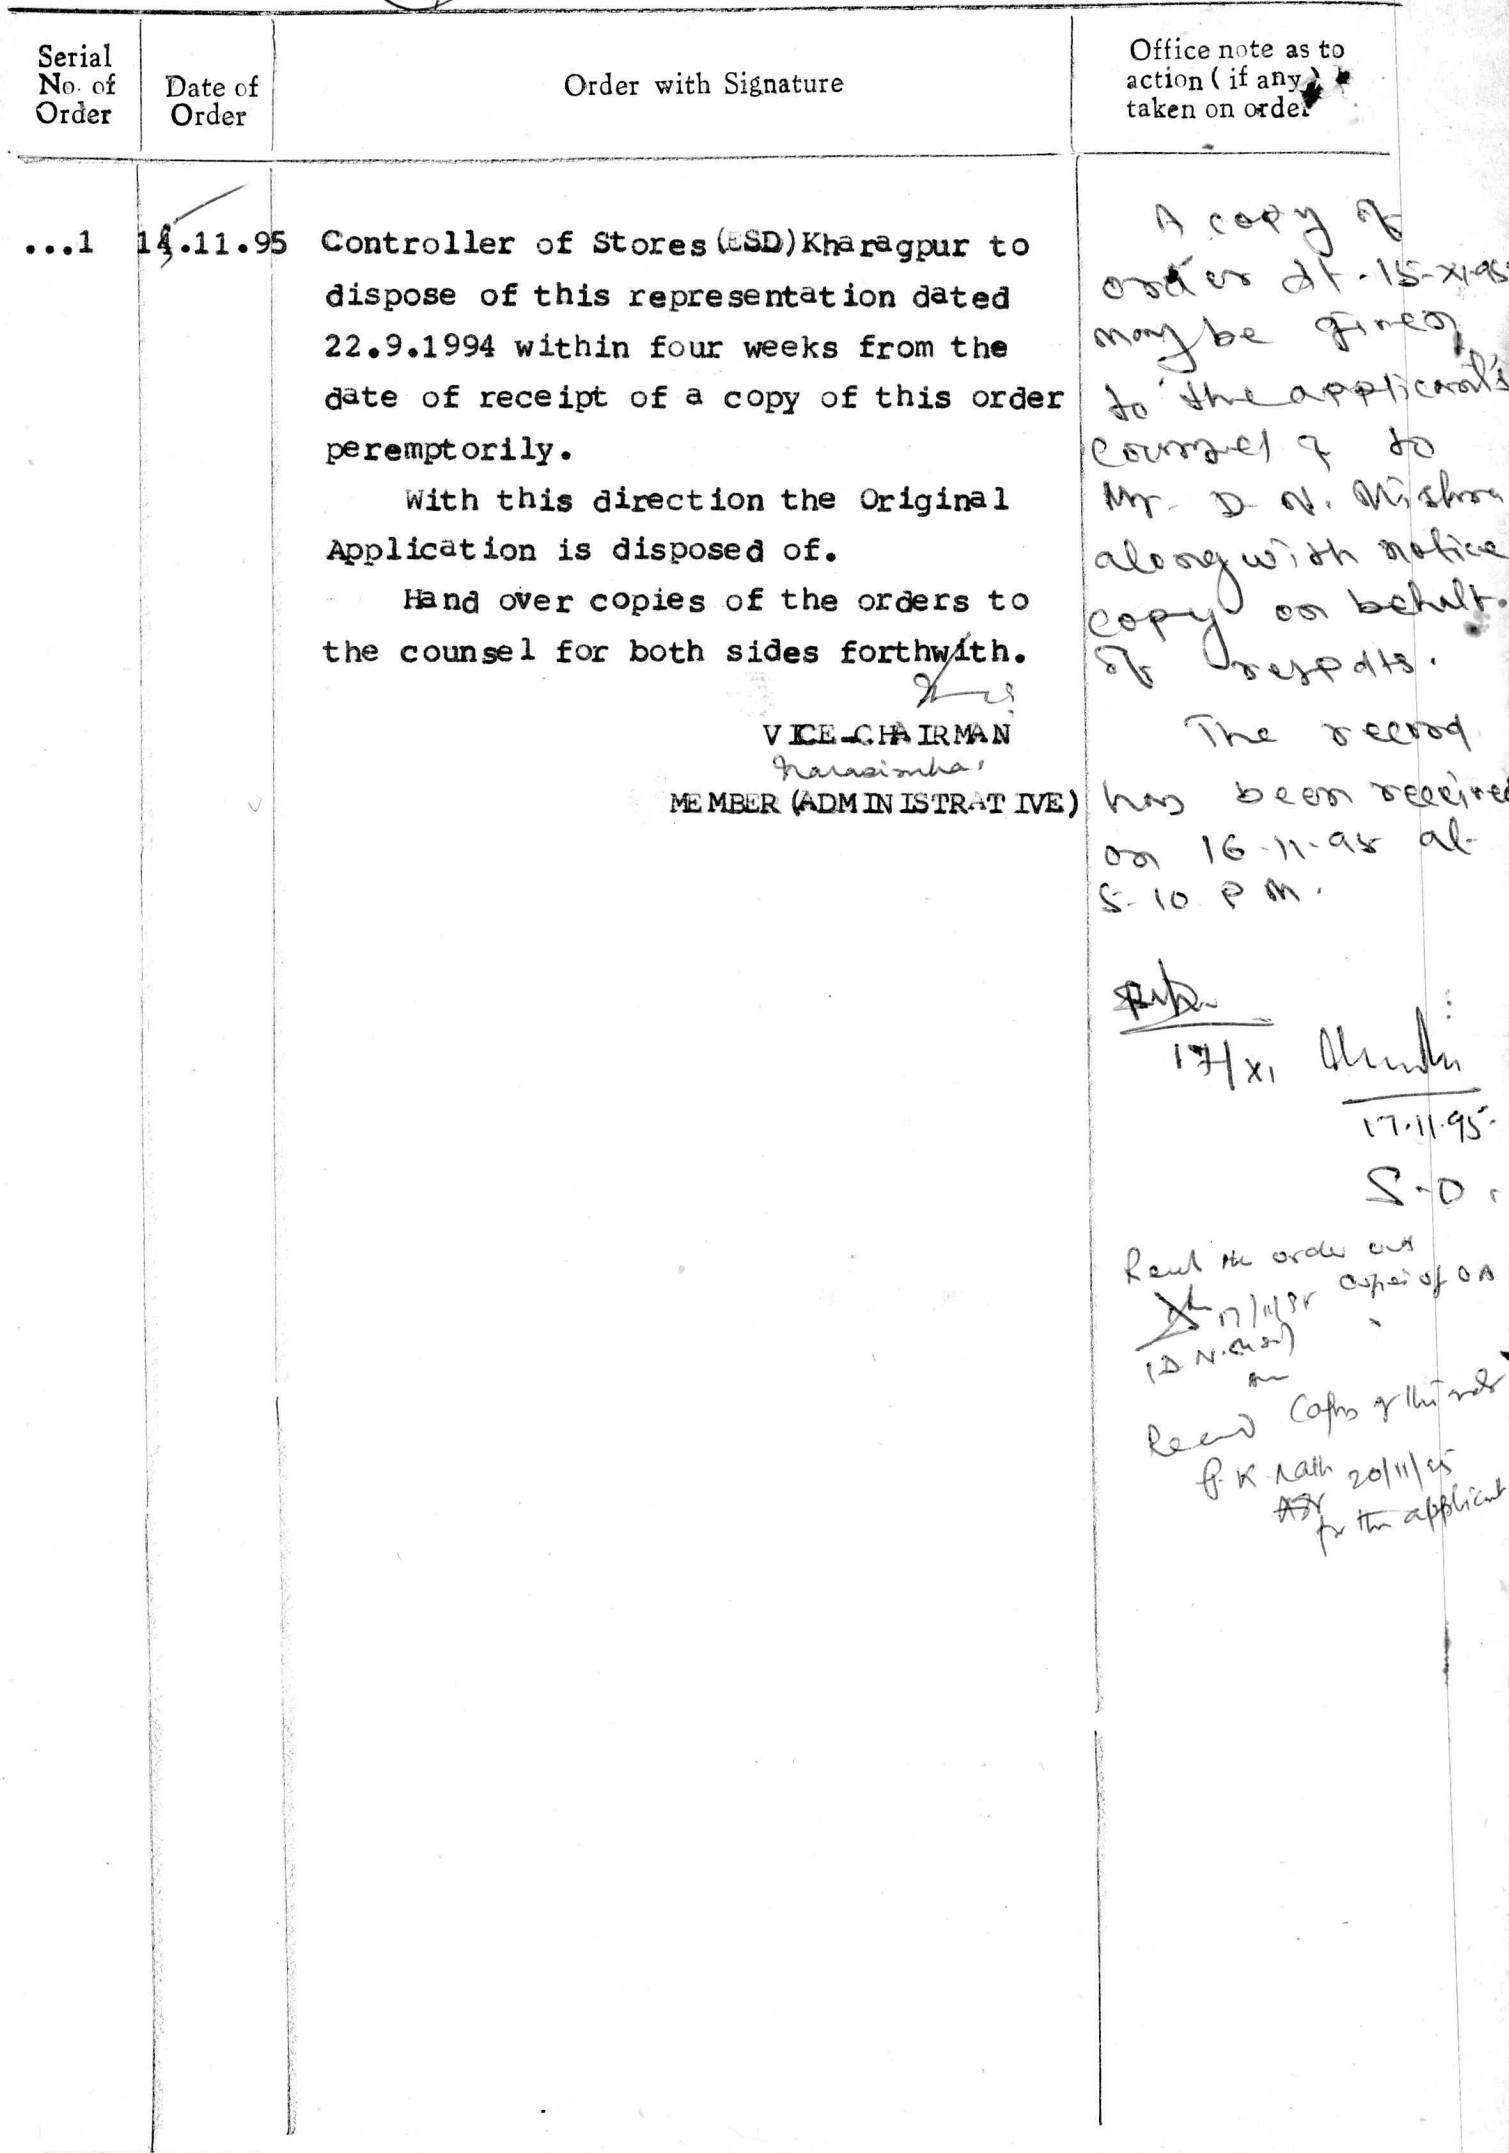 Serial
No. of
Order
Date of
Order
Order with Signature
Office note as to
action ( if any )
taken on order
...1 .11.95
Controller of Stores (ESD) Kharagpur to
dispose of this representation dated
22.9.1994 within four weeks from the
date of receipt of a copy of this order
peremptorily.
With this direction the Original
Application is disposed of.
Hand over copies of the orders to
the counsel for both sides forthwith.
VICE-CHAIRMAN
Narasimha
MEMBER (ADMINISTRATIVE)
A copy of
order dt. 15-XI-95
may be given
to the applicant's
counsel & to
Mr. D. N. Mishra
alongwith notice
copy on behalf
of respdts.
The record
has been received
on 16-11-95 at
5-10 P M.
17/XI
17.11.95.
S.O.
the order
copies of OA
17/11/95
(D N
Copies of
P. K. Nath 20/11/95
for the applicant